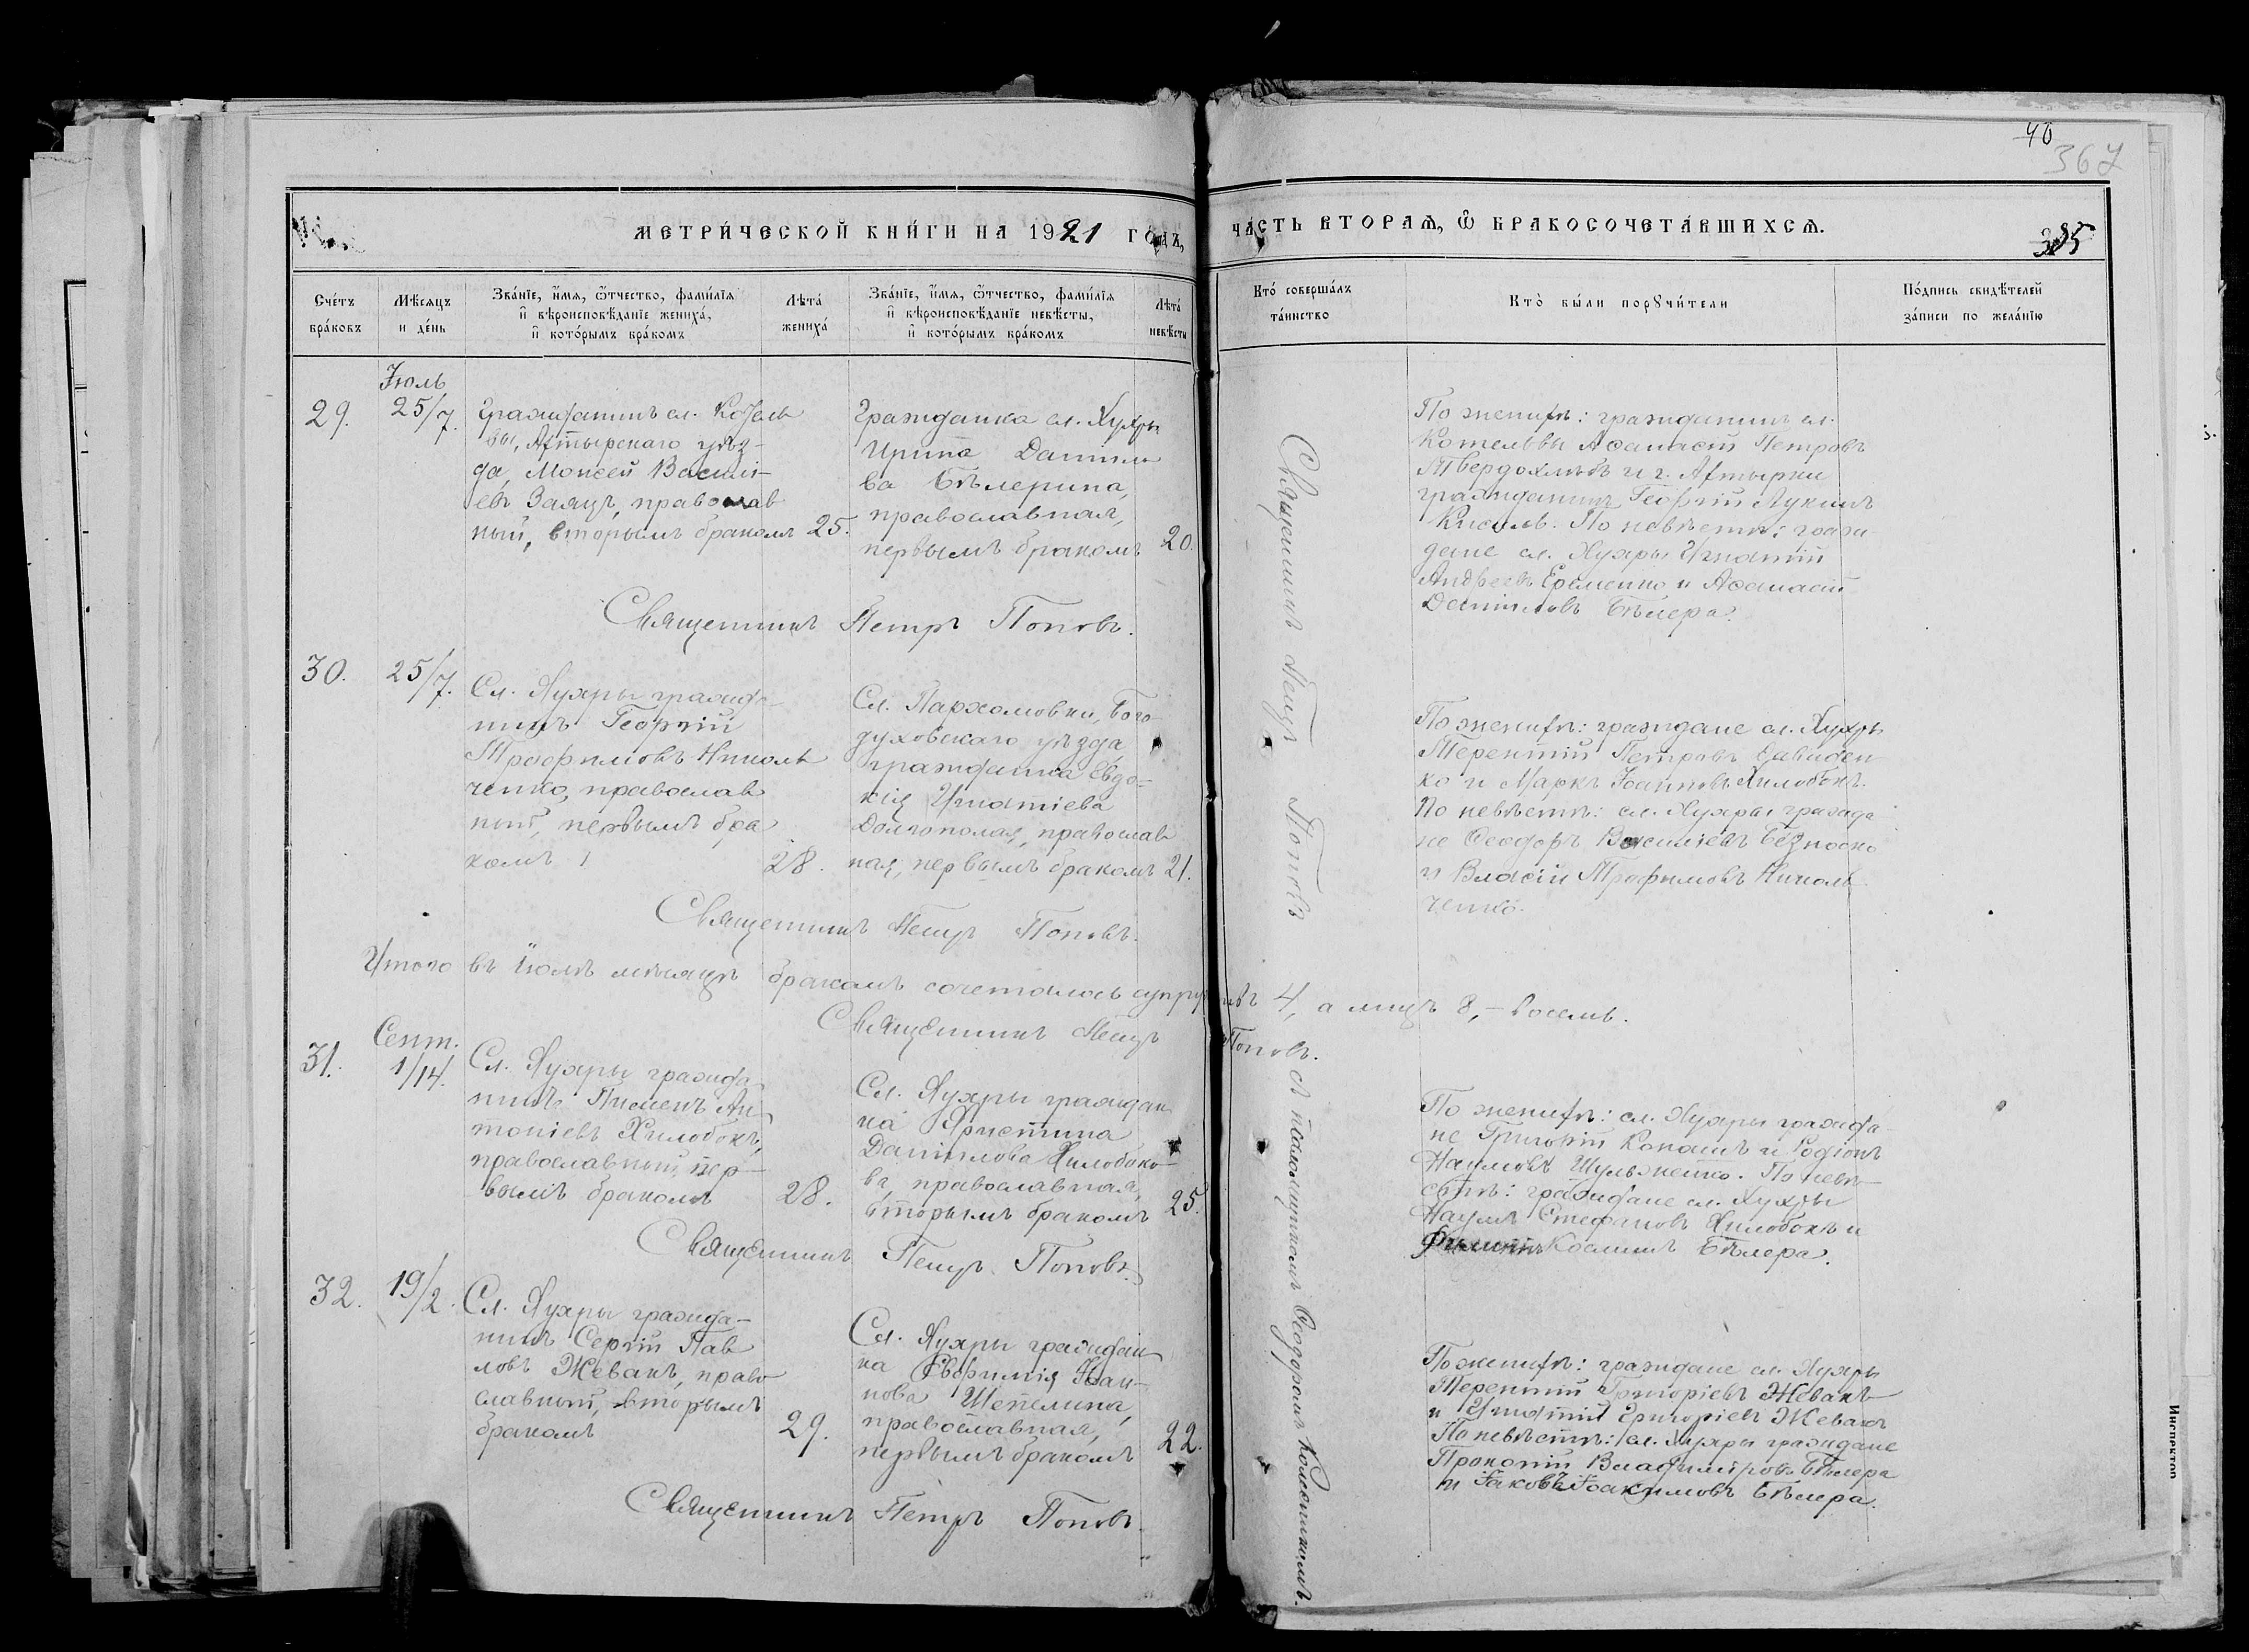 40
367
МЕТРИ́ЧЕСКОЙ КНИ́ГИ НА 1921 ГО́ДЪ,
ЧА́СТЬ ВТОРАѦ, Ѿ БРАКОСОЧЕТА́ВШИХСѦ.
Сче́тъ бра́ковъ
Мѣ́сяцъ и де́нь
Зва́нїе, и́мѧ, ѻ҆́тчество, фами́лїѧ
и҆ вѣроисповѣ́данїе жениха́,
и҆ кото́рымъ бра́комъ
Лѣта́ жениха́
Зва́нїе, и́мѧ, ѻ҆́тчество, фами́лїѧ
и҆ вѣроисповѣ́данїе невѣ́сты,
и҆ кото́рымъ бра́комъ
Лѣта́ невѣ́сты
Кто̀ соверша́лъ
та́инство
Кто̀ бы́ли порꙋчи́тели
По́дпись свидѣ́телей
за́писи по жела́нїю
Іюль
29.
25/7.
Гражданинъ сл. Котель
вы, Ахтырскаго уѣз-
да, Моисей Василі-
евъ Заяцъ, православ
ный, вторымъ бракомъ
25.
Гражданка сл. Хухры
Ирина Даніило
ва Бѣлерина,
православная,
первымъ бракомъ
20.
По женихѣ: гражданинъ сл.
Котельвы Аѳанасій Петровъ
Твердохлѣбъ и г. Ахтырки
гражданинъ Георгій Лукинъ
Кисиль. По невѣстѣ: граж
дане сл. Хухры Игнатій
Андреевъ Еременко и Аѳанасій
Даніиловъ Бѣлера.
Священникъ Петръ Поповъ.
30.
25/7.
Сл. Хухры гражда
нинъ Георгій
Трофимовъ Николь
ченко, православ
ный, первымъ бра
комъ
28.
Сл. Пархомовки, Бого-
духовскаго уѣзда,
гражданка Евдо-
кія Игнатіева
Долгополая, православ
ная, первымъ бракомъ
21.
По женихѣ: граждане сл. Хухры
Терентій Петровъ Давиден
ко и Маркъ Іоанновъ Хилобокъ.
По невѣстѣ: сл. Хухры гражда
не Ѳеодоръ Василіевъ Безноско
и Власій Трофимовъ Николь
ченко.
Священникъ Петръ Поповъ.
Итого въ Іюлѣ мѣсяцѣ бракомъ сочеталось супруговъ 4, а лицъ 8,- восемь.
Священникъ Петръ Поповъ.
Сент.
31.
1/14.
Сл. Хухры гражда
нинъ Пименъ Ан
тоніевъ Хилобокъ,
православный, пер-
вымъ бракомъ
28.
Сл. Хухры граждан
ка Христина
Даніилова Хилобоко-
ва, православная,
вторымъ бракомъ
25.
По женихѣ: сл. Хухры гражда-
не Григорій и Родіонъ
Наумовъ Шульженко. По невѣ-
стѣ: граждане сл. Хухры
Наумъ Стефановъ Хилобокъ и
Косминъ Бѣлера.
Священникъ Петръ Поповъ.
32.
19/2.
Сл. Хухры гражда-
нинъ Сергій Пав
ловъ Жевакъ, право
славный, вторымъ
бракомъ
29.
Сл. Хухры граждан
ка Евфимія Іоан-
нова Шепелина,
православная,
первымъ бракомъ
22.
По женихѣ: граждане сл. Хухры
Терентій Григоріевъ Жевакъ
и Игнатій Григоріевъ Жевакъ
По невѣстѣ: сл. Хухры граждане
Прокопій Владиміровъ Бѣлера
и Іаковъ Іоакимовъ Бѣлера.
Священникъ Петръ Поповъ.
Священникъ Петръ Поповъ съ псаломщикомъ Ѳеодоромъ Колесниковымъ.
Инспектор